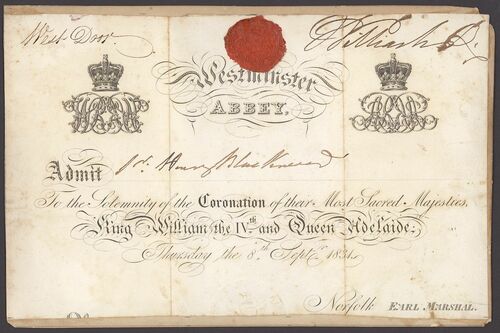 West Door.
Westminster
ABBEY,
Admit Sr. Henry Blackwood
To the Solemnity of the Coronation of their Most Sacred Majesties,
King William the IVth and Queen Adelaide;
Thursday the 8th Septr. 1831.
Norfolk EARL MARSHAL.